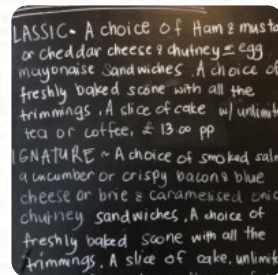 LASSIC - A choice of Ham & musta
or cheddar cheese & chutney ± egg
mayonaise Sandwiches . A choice of
freshly baked scone with all the
trimmings . A slice of cake w/ unlimit
tea or coffee, £ 13.00 pp
IGNATURE ~ A choice of smoked salm
a cucumber or crispy bacon & blue
cheese or brie & caramelised onio
chutney sandwiches. A choice of
freshly baked scone with all the
trimmings. A slice of cake, unlimite